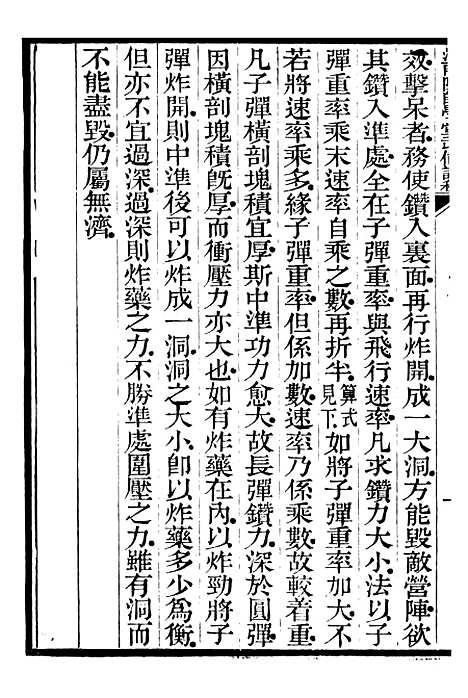 效擊呆者務使鑽入裏面再行炸開成一大洞方能毀敵營陣欲
其鑽入準處全在子彈重率與飛行速率凡求鑽力大小法以子
彈重率乘末速率自乘之數再折半算式見下如將子彈重率加大不
若將速率乘多緣子彈重率但係加數速率乃係乘數故較着重
凡子彈橫剖塊積宜厚斯中準功力愈大故長彈鑽力深於圓彈
因橫剖塊積旣厚而衝壓力亦大也如有炸藥在內以炸勁將子
彈炸開則中準後可以炸成一洞洞之大小卽以炸藥多少爲衡
但亦不宜過深過深則炸藥之力不勝準處圍壓之力雖有洞而
不能盡毀仍屬無濟